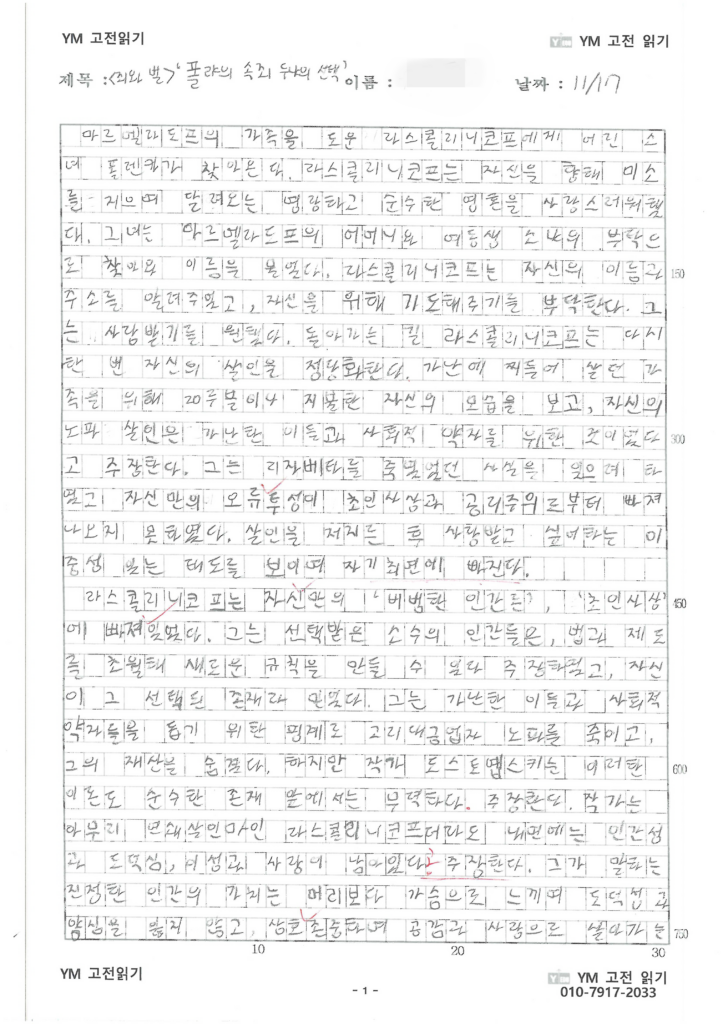 YM 고전읽기
YM 고전 읽기
제목 : <죄와 벌> '폴랴의 속죄 두냐의 선택' 이름 :
날짜 : 11/17
마르멜라도프의 가족을 도운 라스콜리니코프에게 어린 소
녀 폴렌카가 찾아온다. 라스콜리니코프는 자신을 향해 미소
를 지으며 달려오는 명랑하고 순수한 영혼을 사랑스러워했
다. 그녀는 마르멜라도프의 어머니와 여동생 소냐의 부탁으
로 찾아와 이름을 물었다. 라스콜리니코프는 자신의 이름과
150
주소를 알려주었고, 자신을 위해 기도해주기를 부탁한다. 그
는 사랑받기를 원했다. 돌아가는 길 라스콜리니코프는 다시
한 번 자신의 살인을 정당화한다. 가난에 찌들어 살던 가
족을 위해 20루블이나 지불한 자신의 모습을 보고, 자신의
노파 살인은 가난한 이들과 사회적 약자를 위한 것이었다
300
고 주장한다. 그는 리자베타를 죽였었던 사실을 잊으려 하
였고 자신만의 오류투성이 초인사상과 공리주위로부터 빠져
나오지 못하였다. 살인을 저지른 후 사랑받고 싶어하는 이
중성 있는 태도를 보이며 자기최면에 빠진다.
라스콜리니코프는 자신만의 '비범한 인간론', '초인사상'
450
에 빠져있었다. 그는 선택받은 소수의 인간들은, 법과 제도
를 초월해 새로운 규칙을 만들 수 있다 주장하였고, 자신
이 그 선택된 존재라 믿었다. 그는 가난한 이들과 사회적
약자들을 돕기 위한 핑계로 고리대금업자 노파를 죽이고,
그의 재산을 숨겼다. 하지만 작가 도스도옙스키는 이러한
600
이론도 순수한 존재 앞에서는 무력하다. 주장한다. 작가는
아무리 연쇄살인마인 라스콜리니코프더라도 내면에는 인간성
과 도덕심, 이성과 사랑이 남아있다고 주장한다. 그가 말하는
진정한 인간의 가치는 머리보다 가슴으로 느끼며 도덕성과
양심을 잃지 않고, 상호존중하며 공감과 사랑으로 살아가는
750
10
20
30
YM 고전읽기
- 1 -
YM 고전 읽기
010-7917-2033